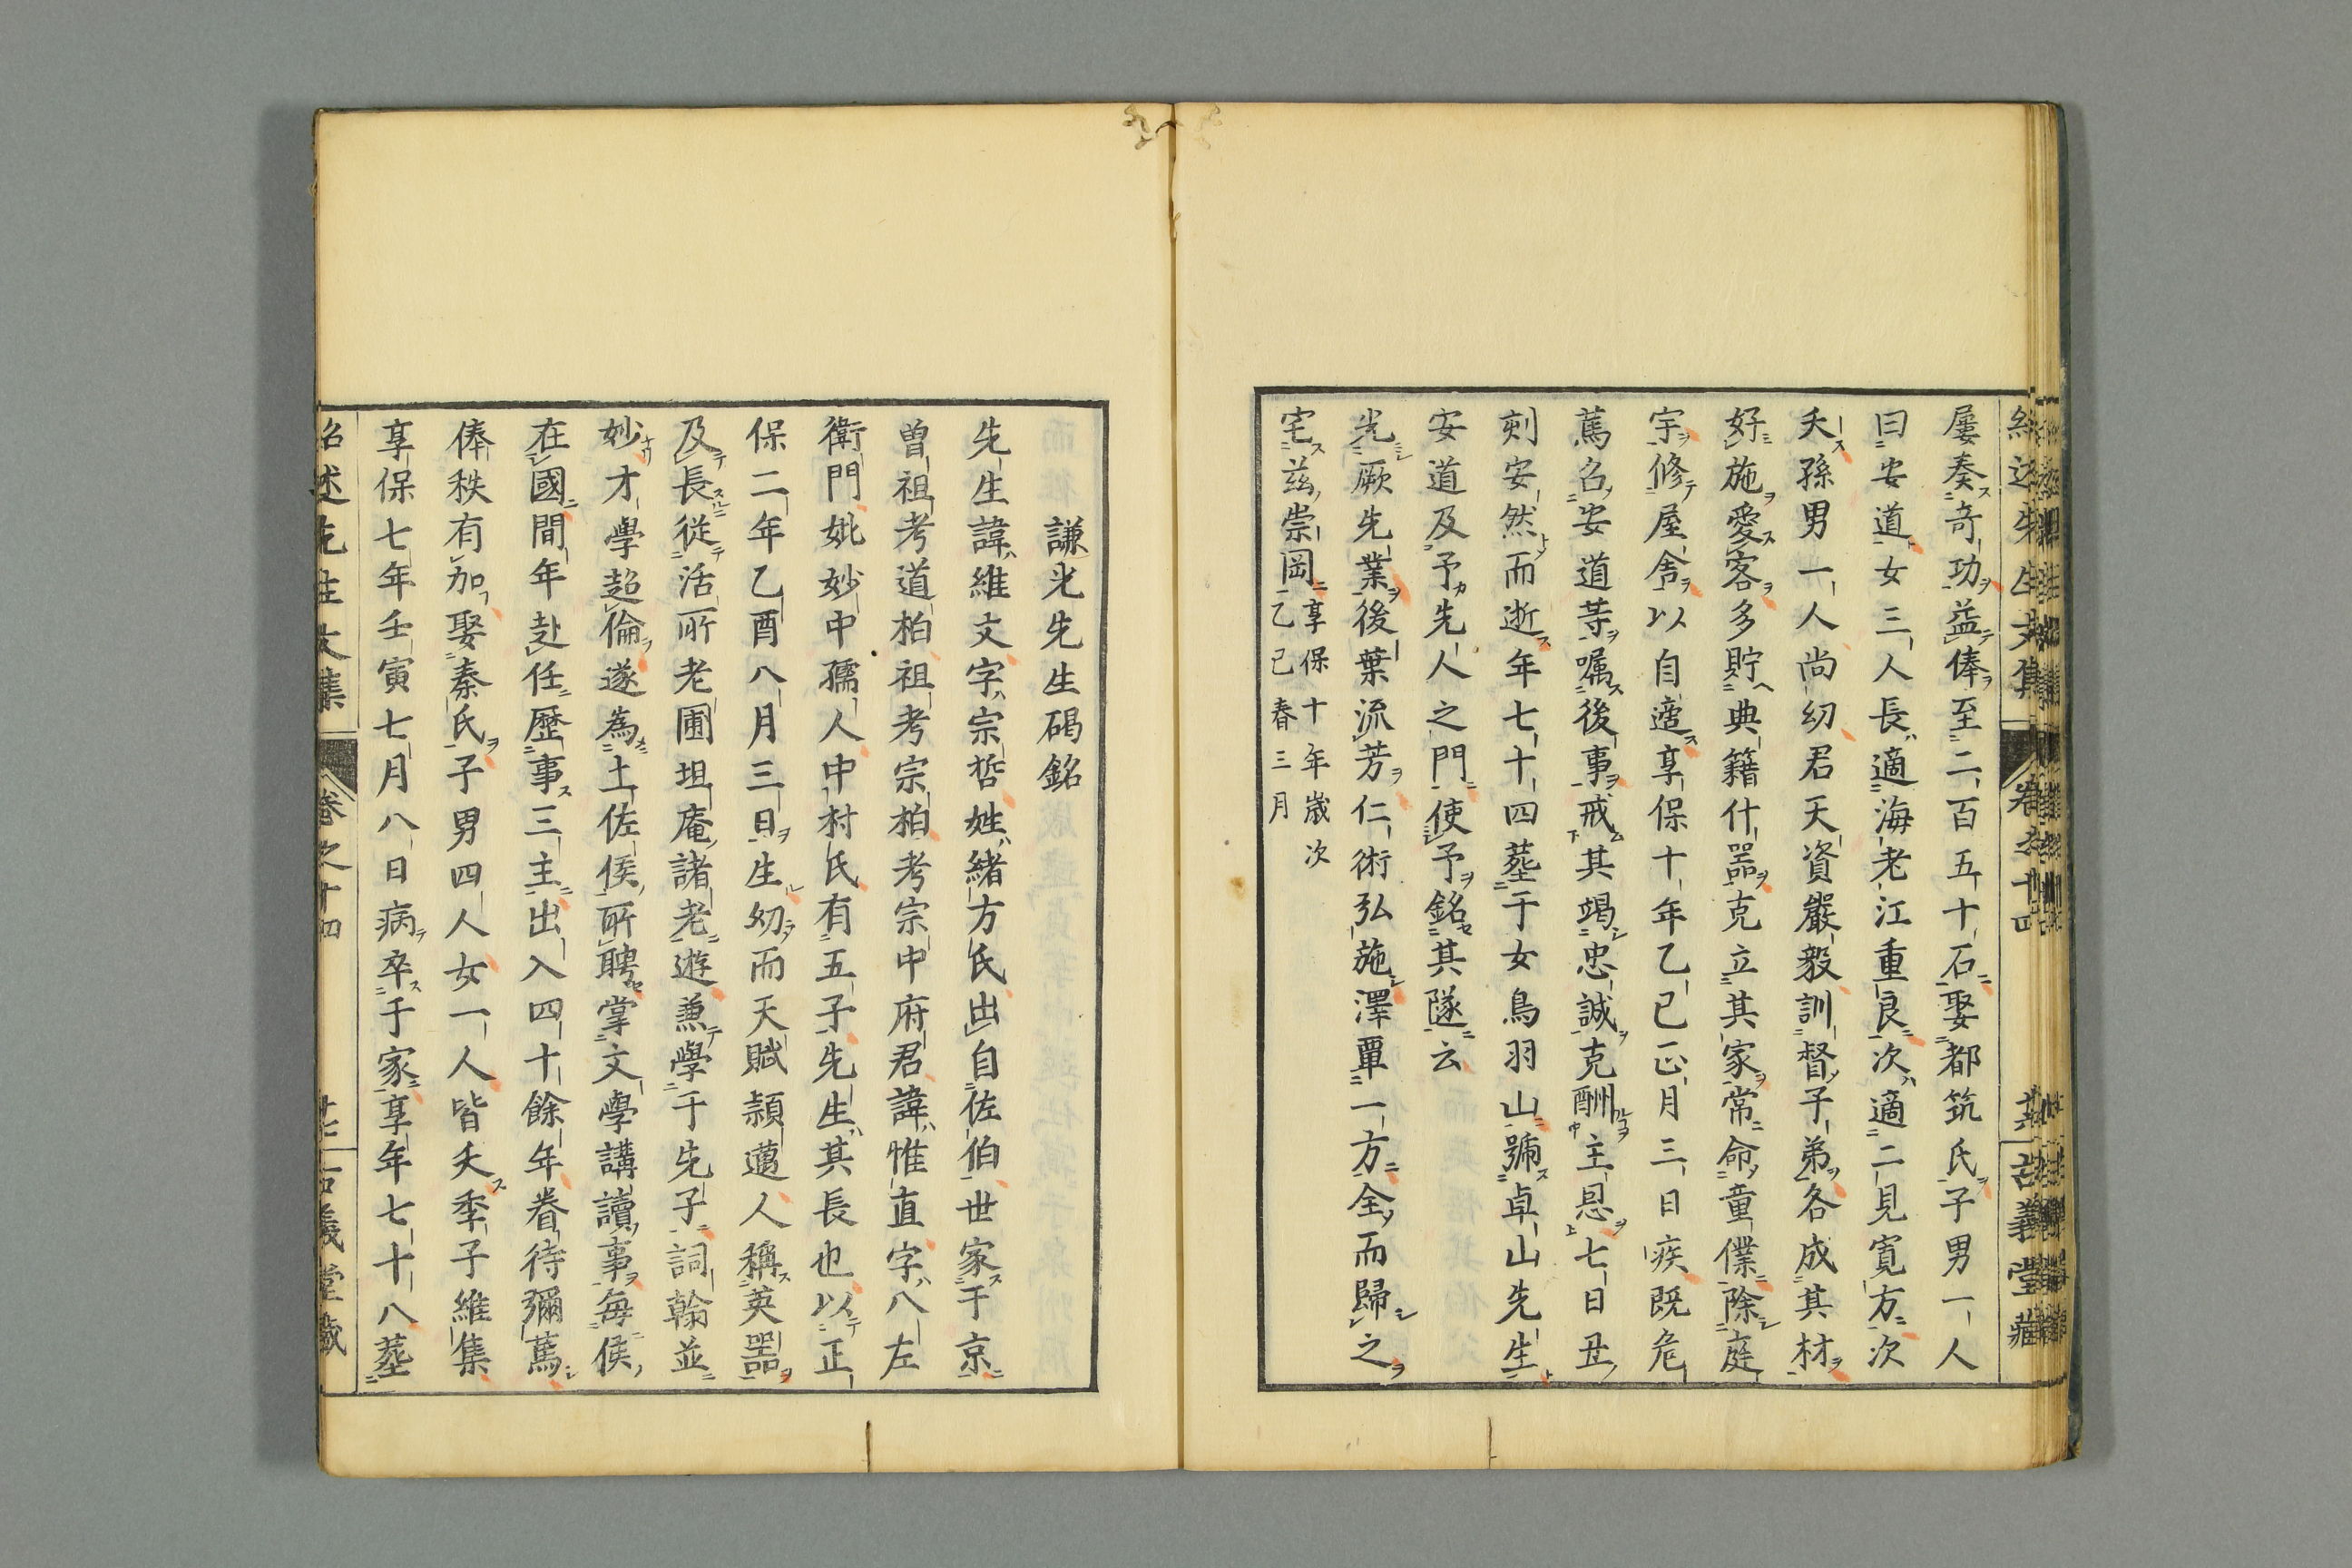 紹述先生文集 卷之十四 古義堂藏
屢奏奇功益俸至二百五十石娶都筑氏子男一人
曰安道女三人長適海老江重良次適二見寬方次
夭孫男一人尚幼君天資嚴毅訓督子弟各成其材
好施愛客多貯典籍什器克立其家常命童僕除庭
宇修屋舍以自適享保十年乙巳正月三日疾既危
篤召安道等嘱後事戒其竭忠誠克酬主恩七日丑
刻安然而逝年七十四葬于女鳥羽山號卓山先生
安道及予先人之門使予銘其隧云
光厥先業後葉流芳仁術弘施澤覃一方全而歸之
宅兹崇岡
享保十年歲次
乙巳春三月
謙光先生碣銘
先生諱維文字宗哲姓緒方氏出自佐伯世家于京
曾祖考道柏祖考宗柏考宗中府君諱惟直字八左
衛門妣妙中孺人中村氏有五子先生其長也以正
保二年乙酉八月三日生幼而天賦頴邁人稱英器
及長從活所老圃坦庵諸老遊兼學于先子詞翰並
妙才學超倫遂為土佐侯所聘掌文學講讀事每侯
在國間年赴任歷事三主出入四十餘年眷待彌篤
俸秩有加娶秦氏子男四人女一人皆夭季子維集
享保七年壬寅七月八日病卒于家享年七十八葬
紹述先生文集 卷之十四 古義堂藏